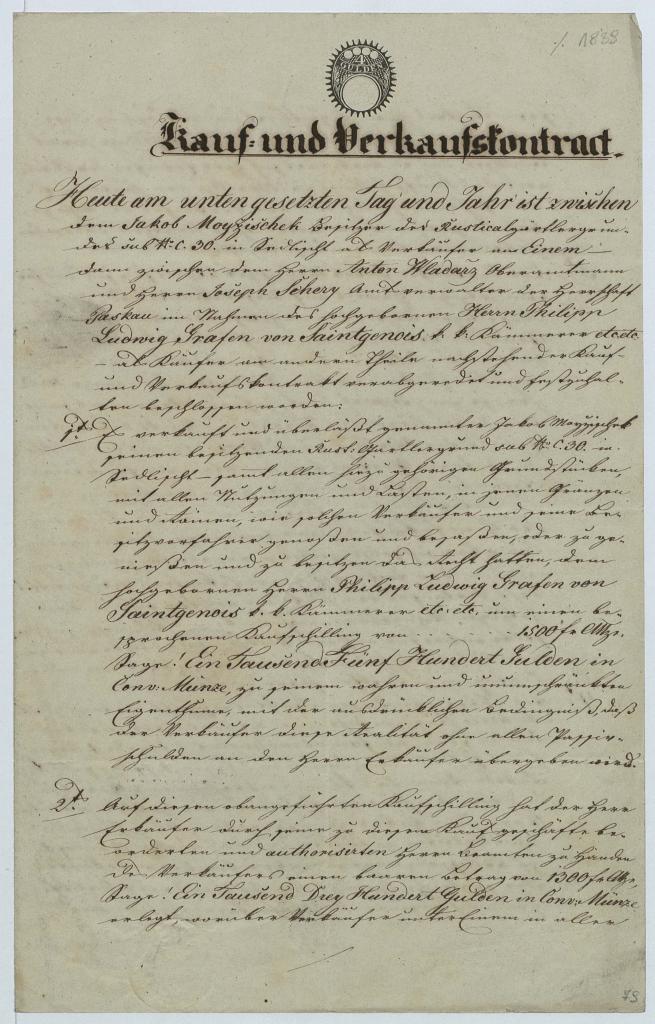 ·/. 1838
4
GULDEN
Kauf- und Verkaufskontract.
Heute am unten gesetzten Tag und Jahr ist zwischen
dem Jakob Moyzischek Besitzer des Rusticalgärtlergrun-
des sub No C. 30. in Sedlischt als Verkäufer an Einem –
dann zwischen dem Herrn Anton Wladarz Oberamtmann
und Herrn Joseph Schery Amtsverwalter der Herrschaft
Paskau im Nahmen des hochgebornen Herrn Philipp
Ludwig Grafen von Saintgenois k. k. Kämmerer etc etc
– als Käufer am andern Theile nachstehender Kauf-
und Verkaufskontrakt verabgeredet und festzuhal-
ten beschlossen worden:
1t. Es verkauft und überläßt genannter Jakob Moyzischek
seinen besitzenden Rust. Gärtlergrund sub No C. 30. in
Sedlischt – samt allen hiezu gehörigen Grundstücken,
mit allen Nutzungen und Lasten, in jenen Gränzen
und Rainen, wie solchen Verkäufer und seine Be-
sitzvorfahrer genossen und besassen, oder zu ge-
nießen und zu besitzen das Recht hatten, dem
hochgebornen Herrn Philipp Ludwig Grafen von
Saintgenois k. k. Kämmerer etc etc. um einen be-
sprochenen Kaufschilling von - - - - 1500 fr CMze.
Sage! Ein Tausend Fünf Hundert Gulden in
Conv: Münze, zu seinem wahren und unumschränkten
Eigenthume, mit der ausdrücklichen Bedingniß, daß
der Verkäufer diese Realität ohne allen Passiv-
schulden an den Herrn Erkäufer übergeben wird.
2t. Auf diesen obangeführten Kaufschilling hat der Herr
Erkäufer durch seine zu diesem Kaufgeschäfte be-
orderten und authorisirten Herrn Beamten zu Handen
des Verkäufers einen baaren Betrag von 1300 fr CMze,
Sage! Ein Tausend Drey Hundert Gulden in Conv: Münze
erlegt, worüber Verkäufer unter Einem in aller
79